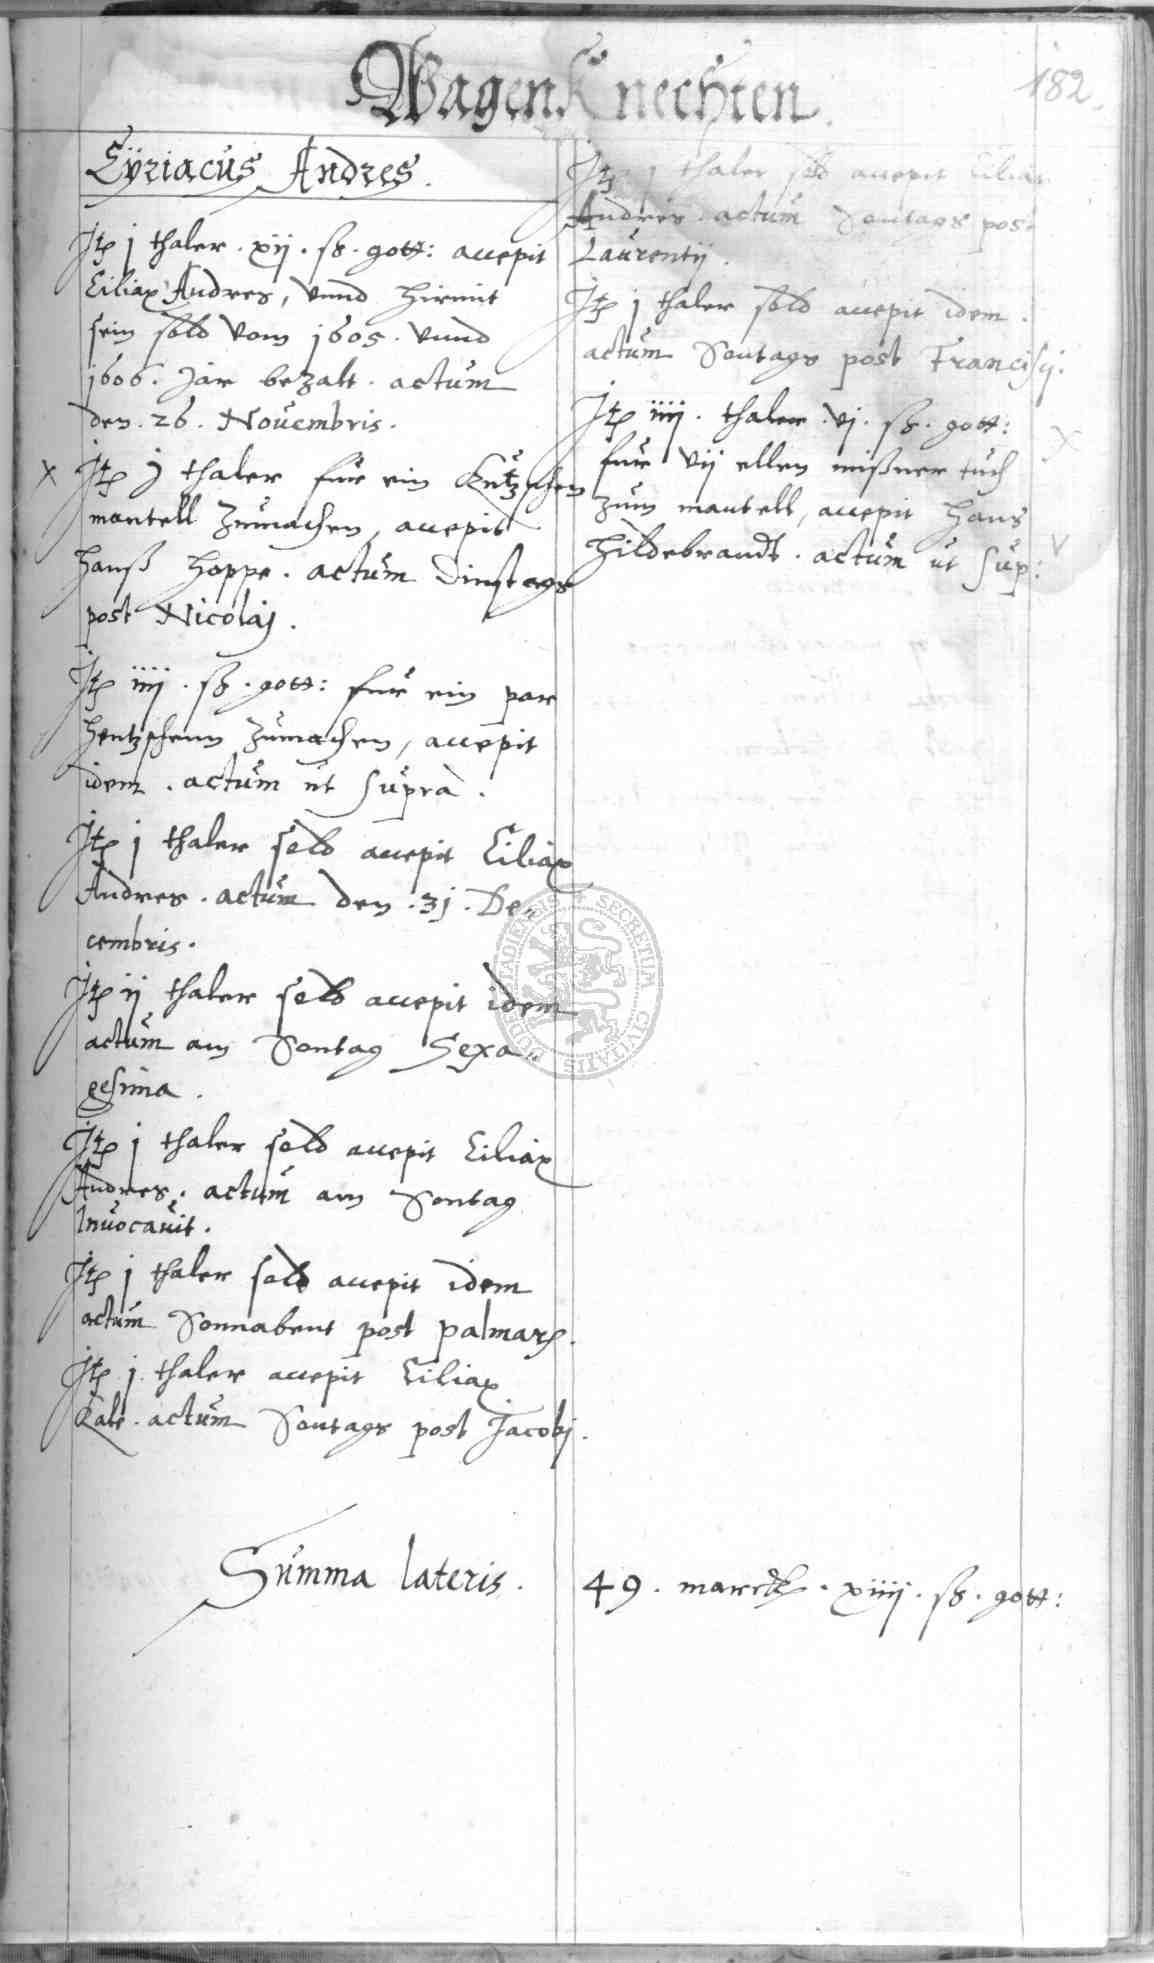 182.
WagenKnechten.
Cÿriacus Andres.
Itē j thaler . xij . ß . gott: accepit
Ciliax Andres, vnnd hirmit
sein sold vom 1605. vnnd
1606. Jar bezalt . actum
den . 26 . Novembris .
X Itē j thaler fur ein Kutzschen
mantell zumachen, accepit
Hanß Hoppe . actum Dinstags
post Nicolaj .
Itē iiij . ß . gott: fur ein par
hentzschenn zumachen, accepit
idem . actum ut supra .
Itē j thaler sold accepit Ciliax
Andres . actum den . 31 . De-
cembris .
Itē ij thaler sold accepit idem
actum am Sontag Sexa-
gesima .
Itē j thaler sold accepit Ciliax
Andres . actum am Sontag
Invocavit .
Itē j thaler sold accepit idem
actum Sonnabent post palmarē .
Itē j thaler accepit Ciliax
actum Sontags post Jacobj .
Itē j thaler sold accepit Ciliax
Andres . actum Sontags post
Laurentij .
Itē j thaler sold accepit idem .
actum Sontags post Francisij .
Itē iiij . thaler . vj . ß . gott: X
fur vij ellen mißner tuch
zum mantell, accepit Hans
Hildebrandt . actum ut sup: V
Summa lateris . 49 . marck . xiiij . ß . gott:
SECRETUM CIVITATIS DUDERSTADIENSIS